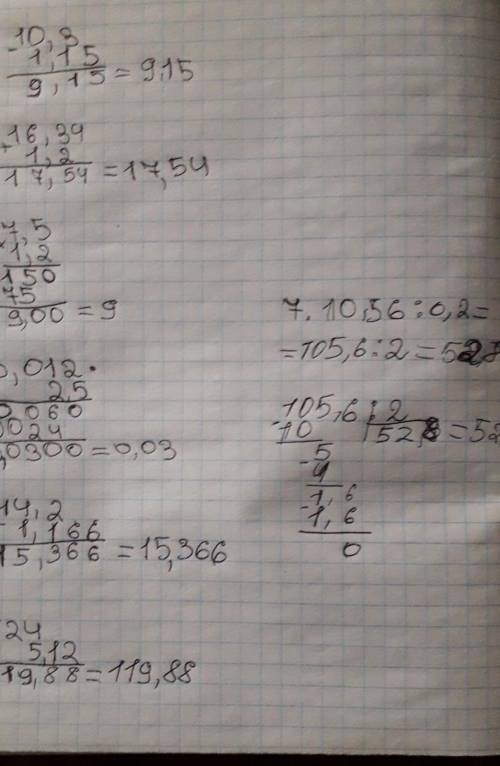 -10,3
1,15
9,15 = 9,15
16,34
+ 1,2
17,54 = 17,54
7,5
× 1,2
150
75
9,00 = 9
0,012 ·
2,5
0,060
0024
,0300 = 0,03
14,2
+ 1,166
15,366 = 15,366
24
5,12
19,88 = 119,88
7. 10,56 : 0,2 =
= 105,6 : 2 = 52,8
105,6 : 2
- 10 52,8 = 52
5
- 4
1,6
- 1,6
0